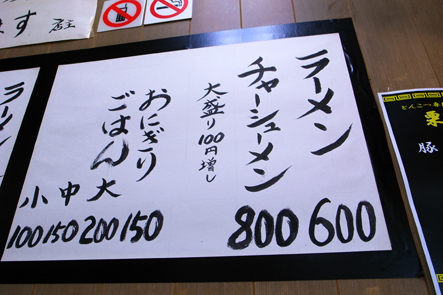 ラーメン 600
チャーシューメン 800
大盛り100円増し
おにぎり 150
ごはん
大 200
中 150
小 100
ラーメン
ます 店主
とんこつ
栗
豚